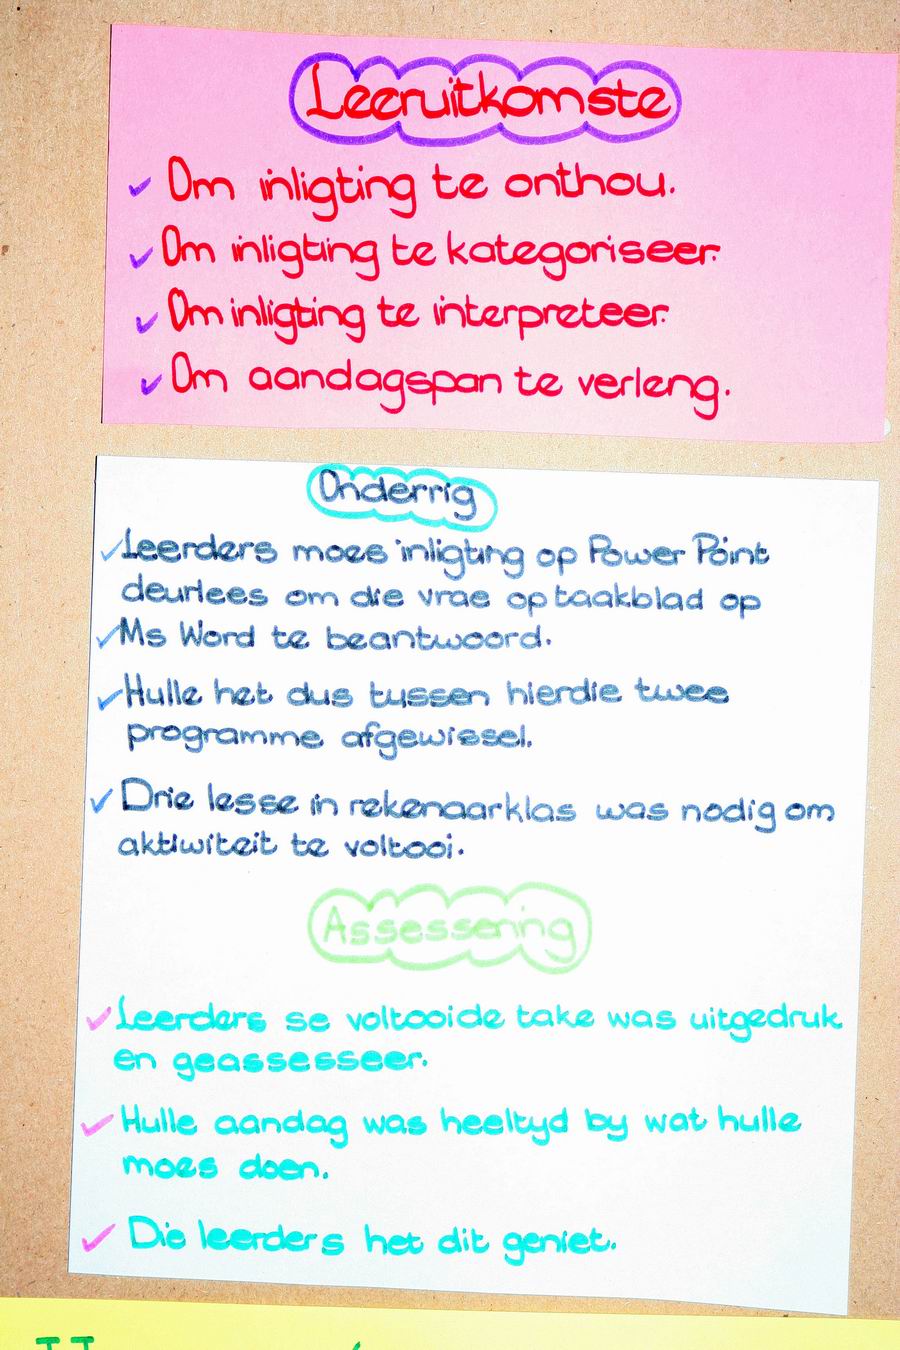 Leeruitkomste
✓ Om inligting te onthou.
✓ Om inligting te kategoriseer.
✓ Om inligting te interpreteer.
✓ Om aandagspan te verleng.
Onderrig
✓ Leerders moes inligting op Power Point
deurlees om die vrae op taakblad op
✓ Ms Word te beantwoord.
✓ Hulle het dus tussen hierdie twee
programme afgewissel.
✓ Drie lesse in rekenaarklas was nodig om
aktiwiteit te voltooi.
Assessering
✓ Leerders se voltooide take was uitgedruk
en geassesseer.
✓ Hulle aandag was heeltyd by wat hulle
moes doen.
✓ Die leerders het dit geniet.